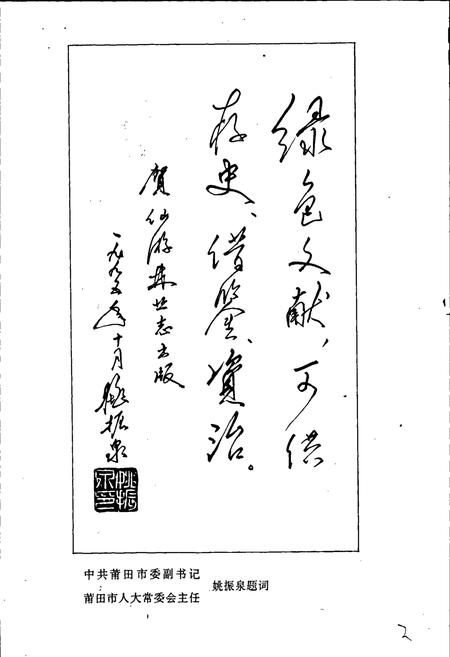 绿色文献，可供
存史、借鉴、资治。
贺仙游林业志出版
一九九五年十月 姚振泉
中共莆田市委副书记
莆田市人大常委会主任
姚振泉题词
2